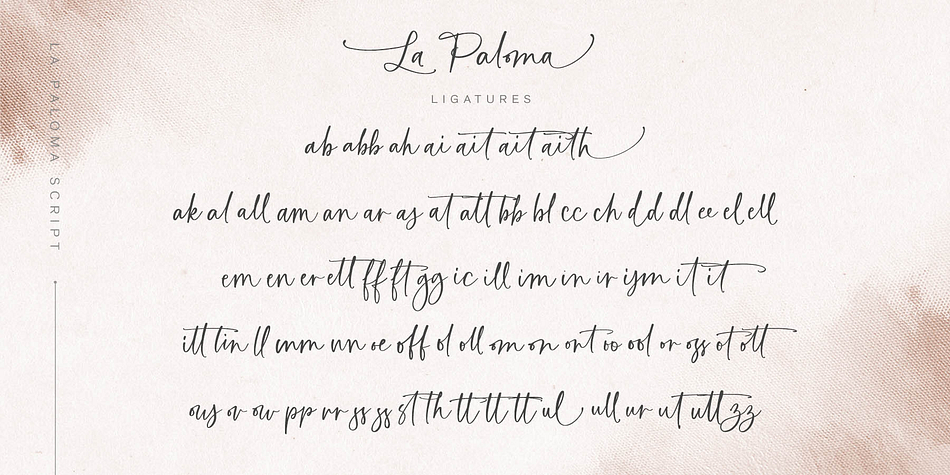 La Paloma
LIGATURES
LA PALOMA SCRIPT
ab abb ah ai ait ait aith
ak al all am an ar as at att bb bl cc ch dd dl ee el ell
em en er ett ff ft gg ic ill im in ir is m it it
itt lin ll mm nn oe off ol oll om on ont oo ool or os ot ott
ov ow pp rr ss ss st th tt tt tt ul ull ur ut utt zz